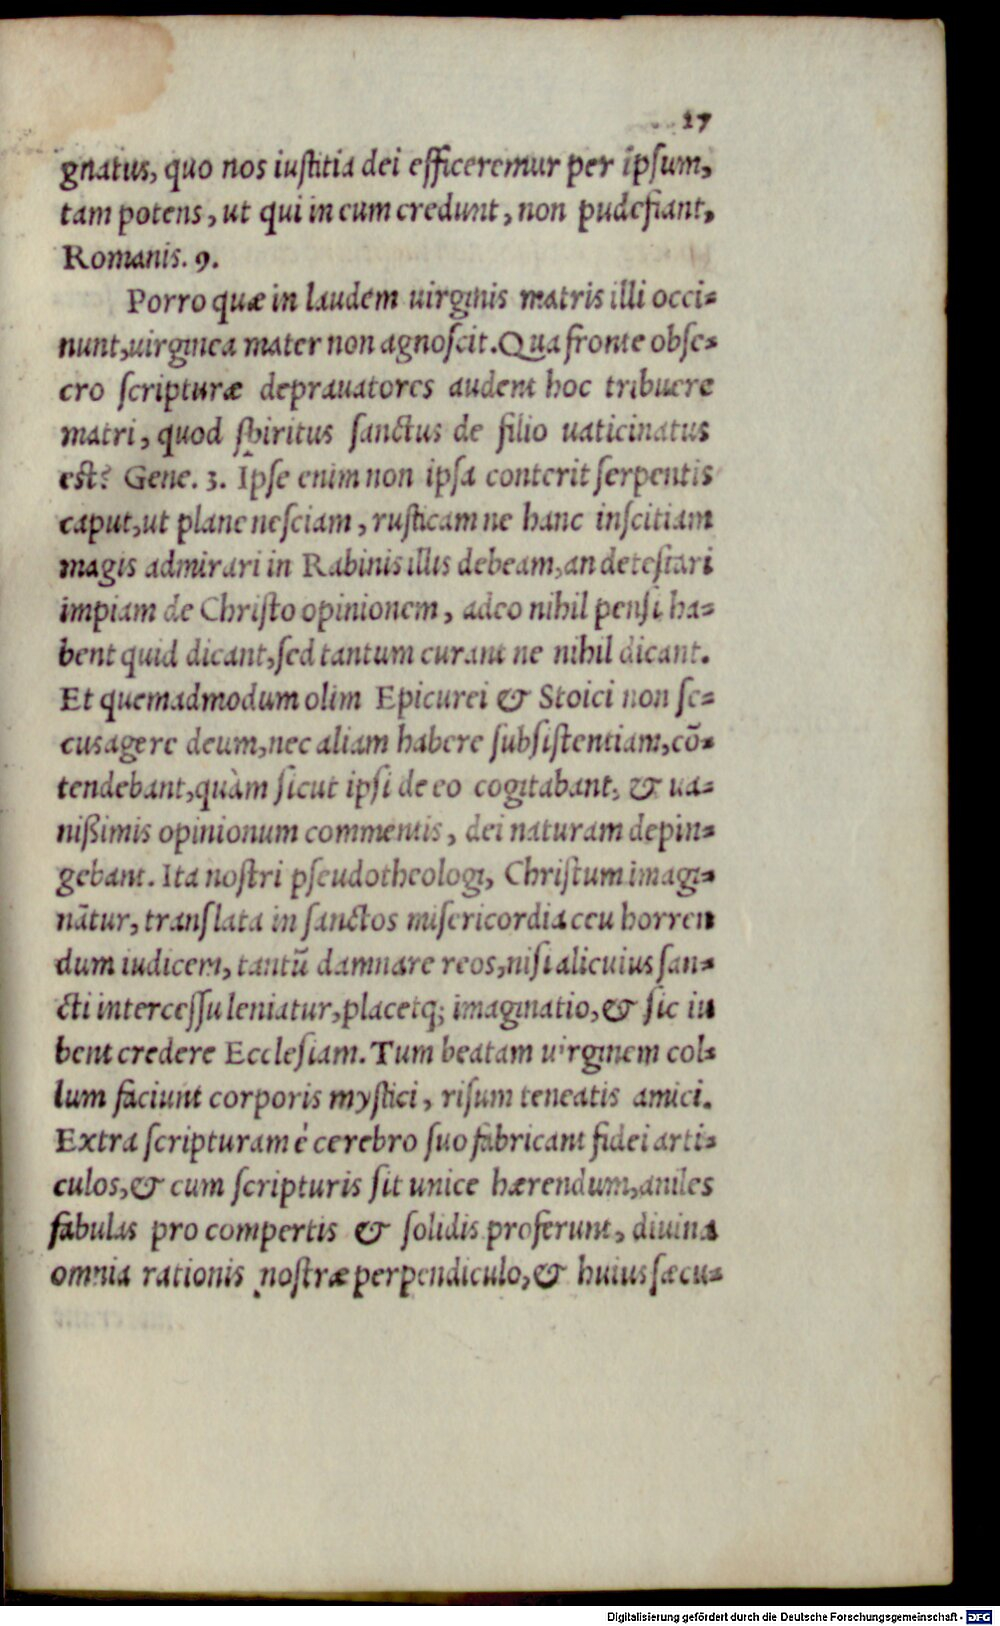 27
gnatus, quo nos iustitia dei efficeremur per ipsum,
tam potens, ut qui in eum credunt, non pudefiant,
Romanis. 9.
Porro quæ in laudem uirginis matris illi occi-
nunt, uirginea mater non agnoscit. Qua fronte obse-
cro scripturæ deprauatores audent hoc tribuere
matri, quod spiritus sanctus de filio uaticinatus
est? Gene. 3. Ipse enim non ipsa conterit serpentis
caput, ut plane nesciam, rusticam ne hanc inscitiam
magis admirari in Rabinis illis debeam, an detestari
impiam de Christo opinionem, adeo nihil pensi ha-
bent quid dicant, sed tantum curant ne nihil dicant.
Et quemadmodum olim Epicurei & Stoici non se-
cus agere deum, nec aliam habere subsistentiam, cõ-
tendebant, quàm sicut ipsi de eo cogitabant, & ua-
nißimis opinionum commentis, dei naturam depin-
gebant. Ita nostri pseudotheologi, Christum imagi-
nãtur, translata in sanctos misericordia ceu horren
dum iudicem, tantũ damnare reos, nisi alicuius san-
cti intercessu leniatur, placetq; imaginatio, & sic iu
bent credere Ecclesiam. Tum beatam uirginem col-
lum faciunt corporis mystici, risum teneatis amici.
Extra scripturam è cerebro suo fabricant fidei arti-
culos, & cum scripturis sit unice hærendum, aniles
fabulas pro compertis & solidis proferunt, diuina
omnia rationis nostræ perpendiculo, & huius sæcu-
Digitalisierung gefördert durch die Deutsche Forschungsgemeinschaft - DFG